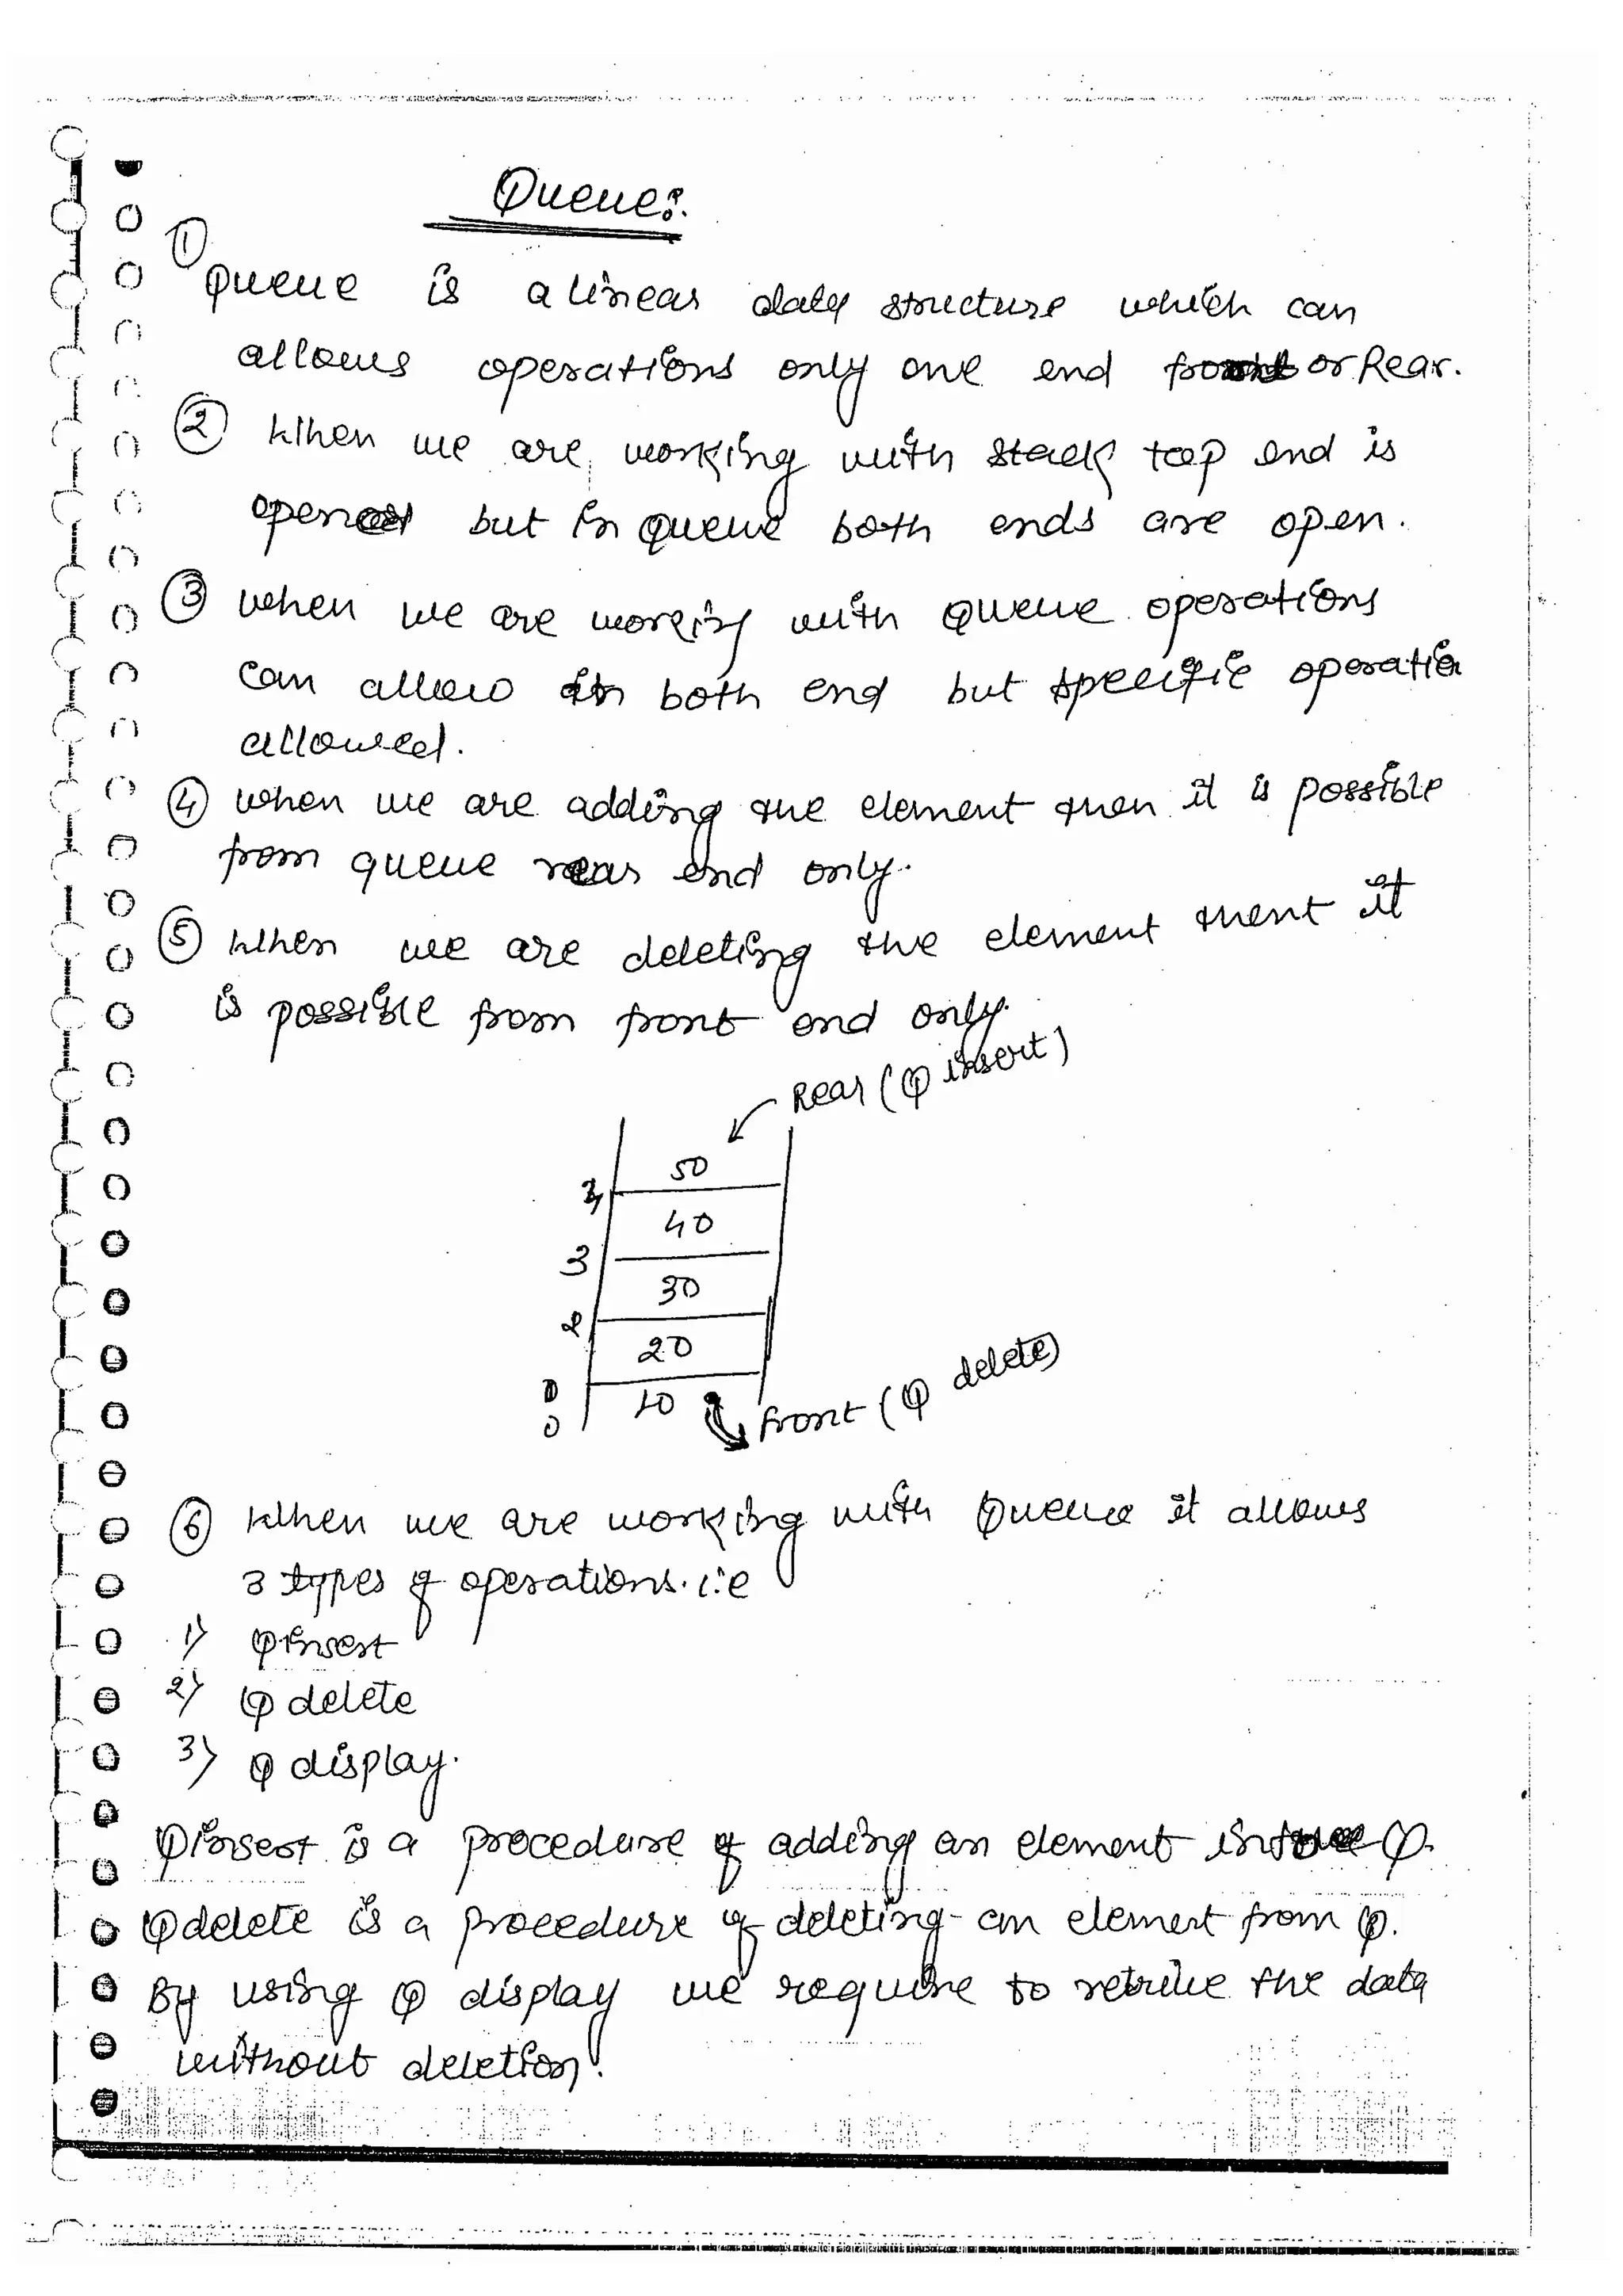 Queue:
① Queue is a linear data structure which can
allows operations only one end front or Rear.
② When we are working with stack top end is
opened but in queue both ends are open.
③ when we are working with queue operations
can allow in both end but specific operation
allowed.
④ when we are adding the element then it is possible
from queue rear end only.
⑤ When we are deleting the element thent it
is possible from front end only.
Rear (Q insert)
50
40
3
30
2
20
10
0
Front (Q delete)
⑥ When we are working with Queue it allows
3 types of operations. i.e
1) Qinsert
2) Q delete
3) Q display.
Qinsert is a procedure of adding an element into Q.
Qdelete is a procedure of deleting an element from Q.
By using Q display we require to retrive the data
without deletion.